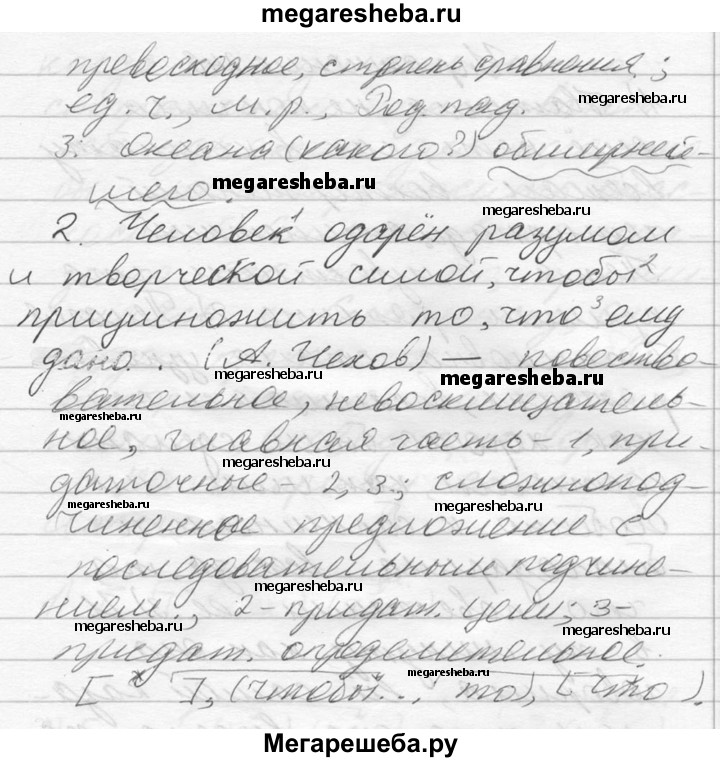 megaresheba.ru
превосходное, степень сравнения.;
ед. ч., м. р., Род. пад.
megaresheba.ru
3. Океана (какого?) обширней-
шего.
megaresheba.ru
megaresheba.ru
2. Человек¹ одарён разумом
и творческой силой, чтобы²
приумножить то, что³ ему
дано. (А. Чехов) — повество-
megaresheba.ru
megaresheba.ru
вательное, невосклицатель-
megaresheba.ru
ное, главная часть - 1, при-
megaresheba.ru
даточные - 2, 3.; сложнопод-
megaresheba.ru
чиненное предложение с
последовательным подчине-
megaresheba.ru
нием, 2 - придат. цели; 3 -
megaresheba.ru
megaresheba.ru
придат. определительное.
megaresheba.ru
[ х ], (чтобы.., то), (что).
Мегарешеба.ру